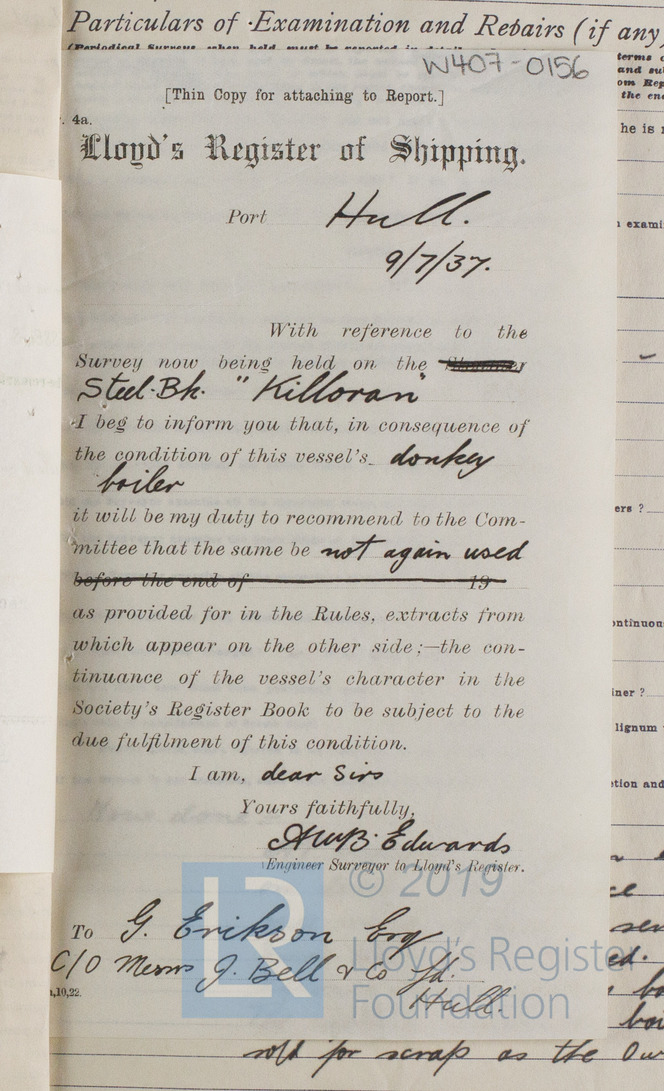 Particulars of Examination and Repairs (if any
W407-0156
terms o
and su
om Rep
the en
[Thin Copy for attaching to Report.]
4a.
he is
Lloyd's Register of Shipping.
Port Hull.
examin
9/7/37.
With reference to the
Survey now being held on the
Steel Bk. "Killoran"
I beg to inform you that, in consequence of
the condition of this vessel's donkey
boiler
ers ?
it will be my duty to recommend to the Com-
mittee that the same be not again used
before the end of 19
as provided for in the Rules, extracts from
ntinuou
which appear on the other side;—the con-
tinuance of the vessel's character in the
iner ?
Society's Register Book to be subject to the
lignum
due fulfilment of this condition.
I am, dear Sirs
etion and
Yours faithfully,
Edwards
Engineer Surveyor to Lloyd's Register.
© 2019
LR
To G. Erikson Esq
C/O Messrs J. Bell & Co Ld.
Lloyd's Register
Hull.
Foundation
,10,22.
sold for scrap as the Ow